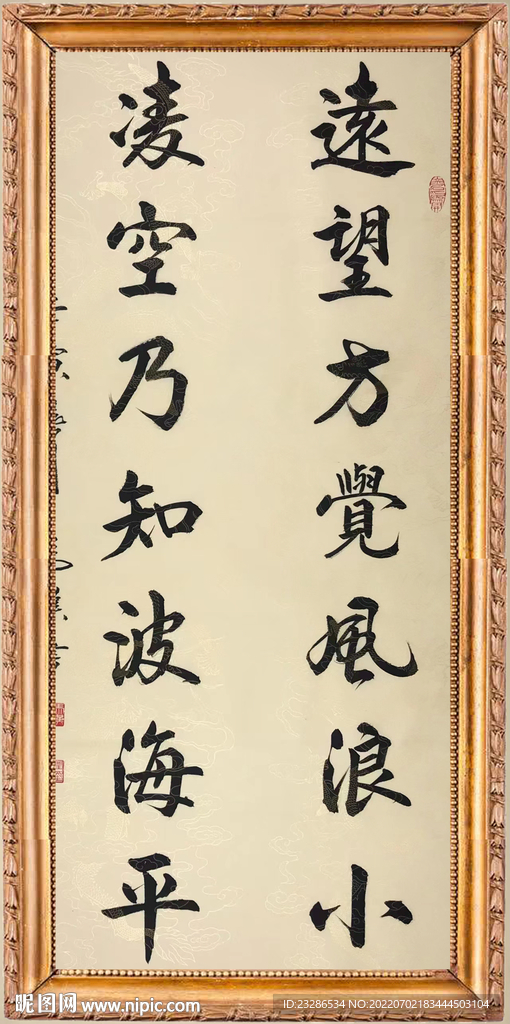 遠望方覺風浪小
凌空乃知波海平
昵图网 www.nipic.com
ID:23286534 NO:20220702183444503104